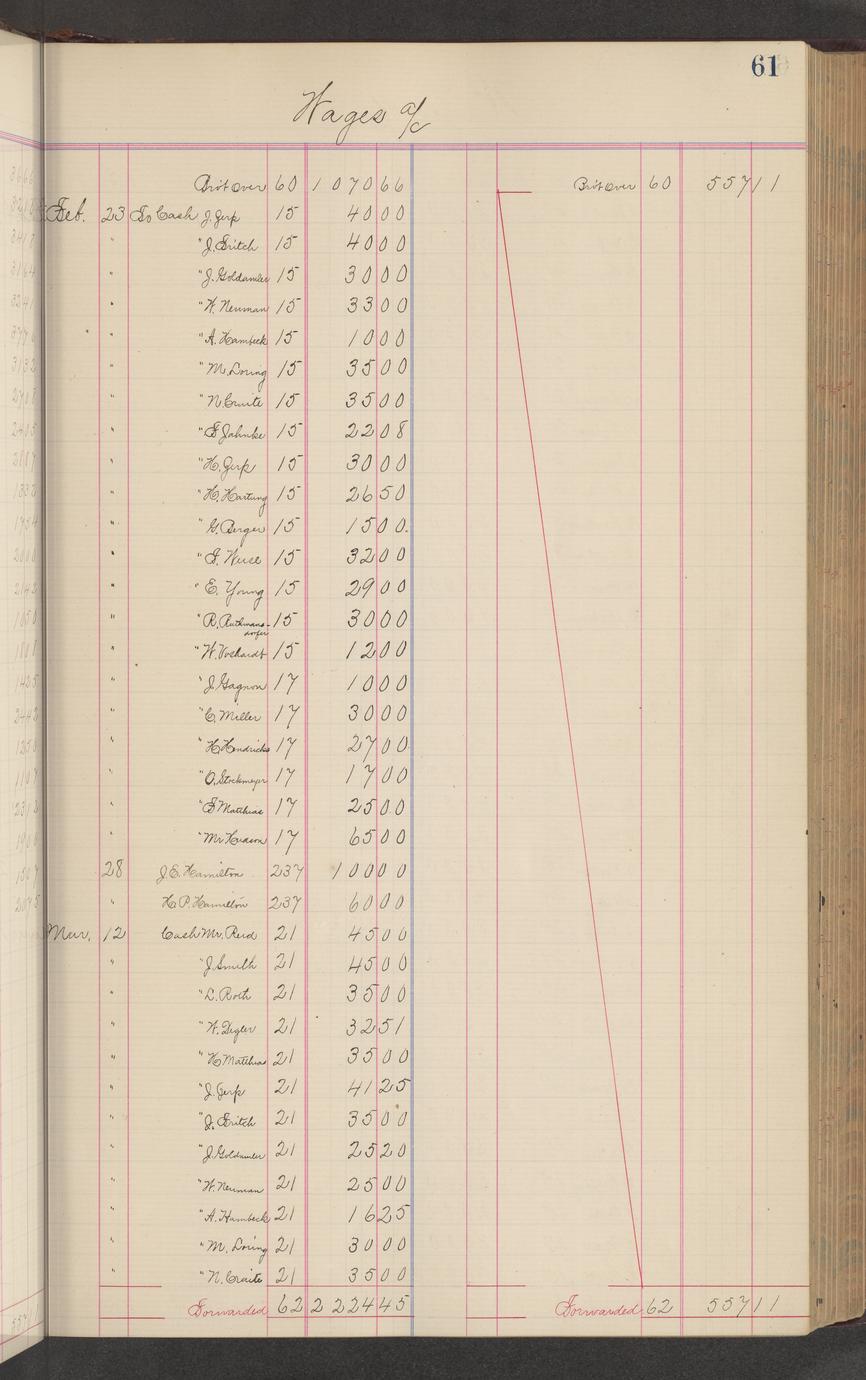 61
Wages a/c
Brot over 60 1 070 66 Brot over 60 557 11
Feb. 23 To Cash J. Gerp 15 40 00
" " J. Britch 15 40 00
" " J. Goldamler 15 30 00
" " W. Neuman 15 33 00
" " A. Hambeck 15 10 00
" " M. Loring 15 35 00
" " N. Craite 15 35 00
" " F. Jahnke 15 22 08
" " H. Gerp 15 30 00
" " H. Hartung 15 26 50
" " G. Berger 15 15 00
" " F. Weise 15 32 00
" " E. Young 15 29 00
" " R. Ruthmans-dorfer 15 30 00
" " W. Voshardt 15 12 00
" " J. Gagnon 17 10 00
" " C. Miller 17 30 00
" " H. Hendricks 17 27 00
" " O. Stockmeyer 17 17 00
" " F. Matthias 17 25 00
" " Mr Hudson 17 65 00
28 J. E. Hamilton 237 100 00
" H. P. Hamilton 237 60 00
Mar. 12 Cash Mr. Reid 21 45 00
" " J. Smith 21 45 00
" " L. Roth 21 35 00
" " W. Degler 21 32 51
" " H. Matthias 21 35 00
" " J. Gerp 21 41 25
" " J. Britch 21 35 00
" " J. Goldamler 21 25 20
" " W. Neuman 21 25 00
" " A. Hambeck 21 16 25
" " M. Loring 21 30 00
" " N. Craite 21 35 00
Forwarded 62 2 224 45 Forwarded 62 557 11